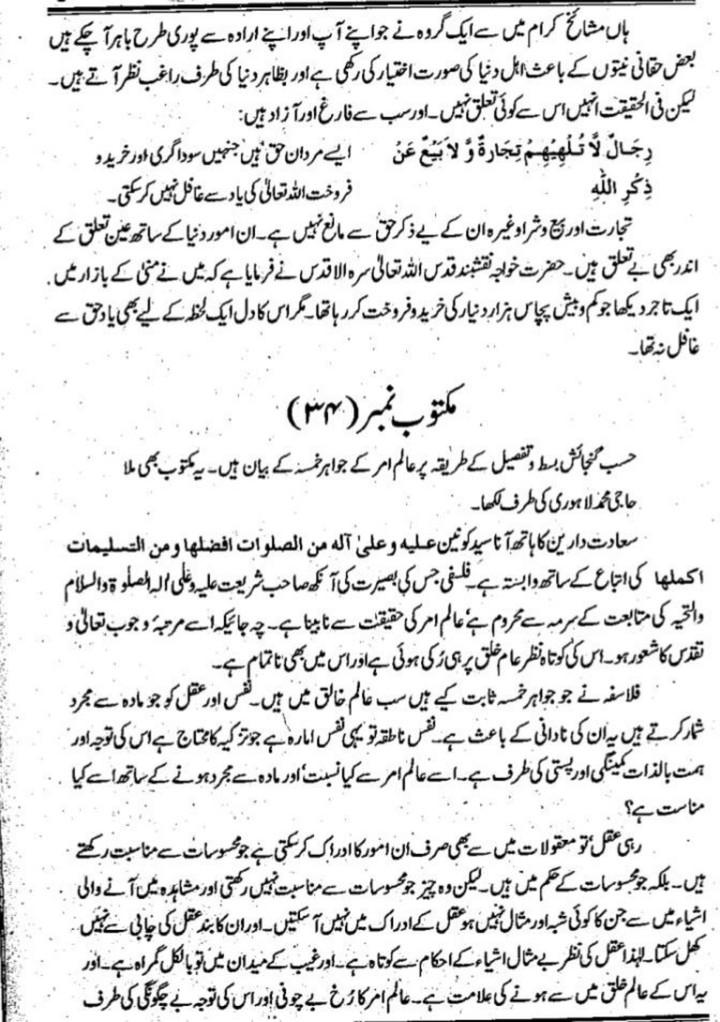 ہاں مشائخ کرام میں سے ایک گروہ نے جو اپنے آپ اور اپنے ارادہ سے پوری طرح باہر آ چکے ہیں
بعض حقانی نیتوں کے باعث اہل دنیا کی صورت اختیار کی رکھی ہے اور بظاہر دنیا کی طرف راغب نظر آتے ہیں۔
لیکن فی الحقیقت انہیں اس سے کوئی تعلق نہیں۔ اور سب سے فارغ اور آزاد ہیں:
رِجَالٌ لَّا تُلْهِيْهِمْ تِجَارَةٌ وَّ لَا بَيْعٌ عَنْ ایسے مردان حق ہیں جنہیں سوداگری اور خرید و
ذِكْرِ اللّٰهِ فروخت اللہ تعالیٰ کی یاد سے غافل نہیں کر سکتی۔
تجارت اور بیع و شرا وغیرہ ان کے لیے ذکر حق سے مانع نہیں ہے۔ ان امور دنیا کے ساتھ عین تعلق کے
اندر بھی بے تعلق ہیں۔ حضرت خواجہ نقشبند قدس اللہ تعالیٰ سرہ الاقدس نے فرمایا ہے کہ میں نے منیٰ کے بازار میں
ایک تاجر دیکھا جو کم و بیش پچاس ہزار دنیار کی خرید و فروخت کر رہا تھا۔ مگر اس کا دل ایک لحظہ کے لیے بھی یاد حق سے
غافل نہ تھا۔
مکتوب نمبر (۳۴)
حسب گنجائش بسط و تفصیل کے طریقہ پر عالم امر کے جواہر خمسہ کے بیان ہیں۔ یہ مکتوب بھی ملا
حاجی محمد لاہوری کی طرف لکھا۔
سعادت دارین کا ہاتھ آنا سید کونین علیہ و علیٰ آلہ من الصلوات افضلها و من التسلیمات
اکملها کی اتباع کے ساتھ وابستہ ہے۔ فلسفی جس کی بصیرت کی آنکھ صاحب شریعت علیہ و علی الہ الصلوۃ والسلام
والتحیہ کی متابعت کے سرمہ سے محروم ہے، عالم امر کی حقیقت سے نابینا ہے۔ چہ جائیکہ اسے مرتبہ وجوب تعالیٰ و
تقدس کا شعور ہو۔ اس کی کوتاہ نظر عام خلق پر ہی رُکی ہوئی ہے اور اس میں بھی ناتمام ہے۔
فلاسفہ نے جو جواہر خمسہ ثابت کیے ہیں سب عالم خالق میں ہیں۔ نفس اور عقل کو جو مادہ سے مجرد
شمار کرتے ہیں یہ ان کی نادانی کے باعث ہے۔ نفس ناطقہ تو یہی نفس امارہ ہے جو تزکیہ کا محتاج ہے اس کی توجہ اور
ہمت بالذات کمینگی اور پستی کی طرف ہے۔ اسے عالم امر سے کیا نسبت، اور مادہ سے مجرد ہونے کے ساتھ اسے کیا
مناست ہے؟
رہی عقل، تو معقولات میں سے بھی صرف ان امور کا ادراک کر سکتی ہے جو محسوسات سے مناسبت رکھتے
ہیں۔ بلکہ جو محسوسات کے حکم میں ہیں۔ لیکن وہ چیز جو محسوسات سے مناسبت نہیں رکھتی اور مشاہدہ میں آنے والی
اشیاء میں سے جن کا کوئی شبہ اور مثال نہیں ہو عقل کے ادراک میں نہیں آ سکتیں۔ اور ان کا بند عقل کی چابی سے نہیں
کھل سکتا۔ لہذا عقل کی نظر بے مثال اشیاء کے احکام سے کوتاہ ہے۔ اور غیب کے میدان میں تو بالکل گمراہ ہے۔ اور
یہ اس کے عالم خلق میں سے ہونے کی علامت ہے۔ عالم امر کا رُخ بے چونی اور اس کی توجہ بے چگونگی کی طرف